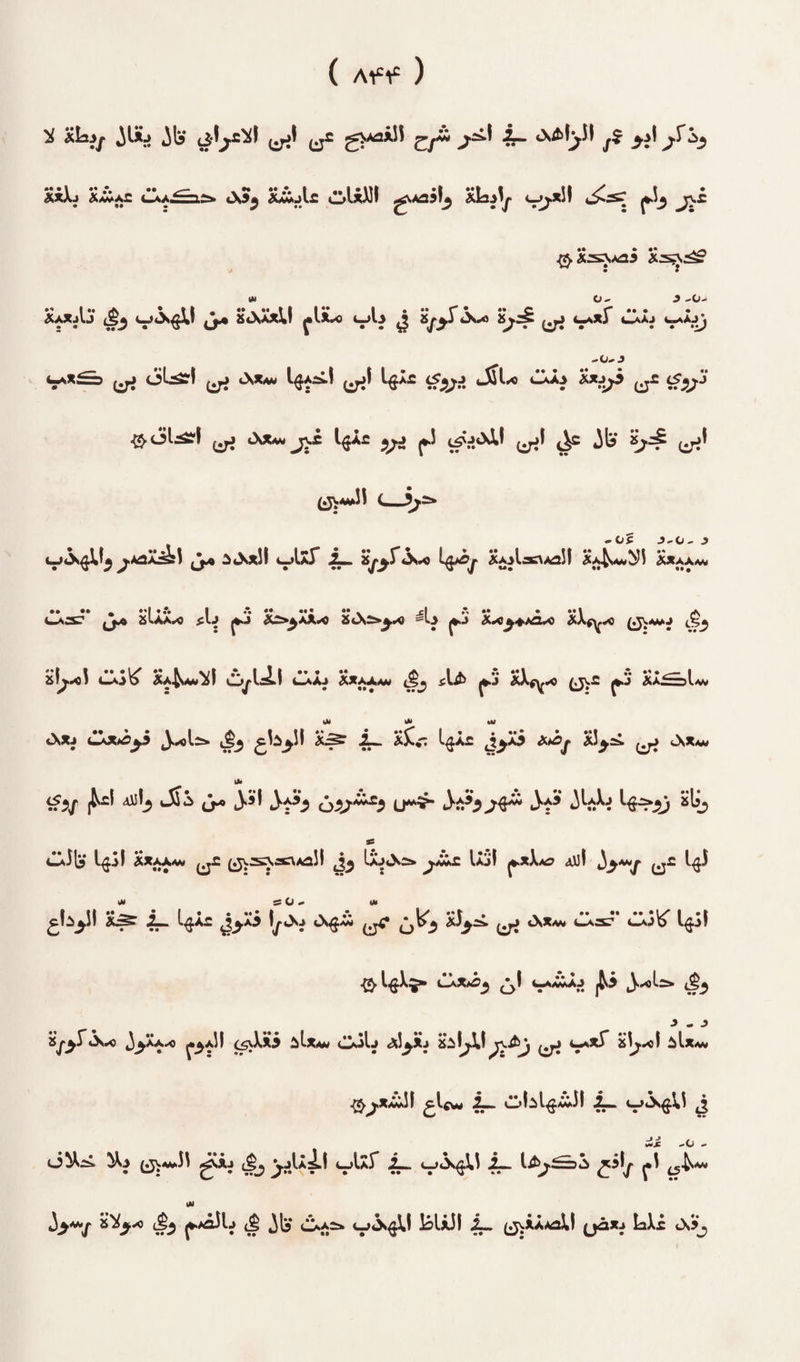 ( ٨۴۴ )
وذكر ابو عمر الزاهد في آخر شرح الفصيح عن ابن الاعرابي قال يقال ريطة لا
غير ولم يحك العرب رايطة وافصح اللغات عايشة وقد حكيت عيشة بلغة
صحيحة فصيحة ۞
زينب بنت كعب بن عجرة مذكورة في باب مقام المعتدة من المهذب وهي تابعية
تروي عن فريعة بنت مالك يروي عنها ابن اخيها سعد بن اسحاق بن كعب
ابن عجرة قال علي ابن المديني لم يرو عنها غير سعد بن اسحاق ۞
حرف السين
سبيعة الاسلمية الصحابية رضها مذكورة في كتاب العدد من المختصر والمهذب
وهي بسين مهملة مضمومة ثم باء موحدة مفتوحة ثم ياء مثناة من تحت
ساكنة ثم عين مهملة ثم هاء وهي سبيعة بنت الحارث الاسلمية كانت امراة
سعد بن خولة رضه فتوفي عنها بمكّة في حجّة الوداع وهي حامل فوضعت بعد
وفاة زوجها بليال قيل شهر وقيل خمس وعشرون وقيل اقلّ من ذلك والله اعلم روي
لها عن رسول الله صلعم اثنا عشر حديثًا وفي الصحيحين عن سبيعة انها قالت
انها كانت تحت سعد بن خولة وكان ممّن شهد بَدْرًا فتوفي عنها في حجّة الوداع
وهي حامل فلم ينشب ان وضعت حملها ۞
سُعَادُ امراة كعب بن زهير المرادة بقوله بانت سعاد فقلبي اليوم متبول مذكورة
في المهذب في الشهادات في سماع الشعر ۞
سلمى ام رافع ذكرها في المهذب في كتاب الجنايز وهي بفتح السين بلا خلاف
وقد غلط بعض المصنفين في الفاظ المهذب حيث قال هي بالضّم وهي مولاة رسول